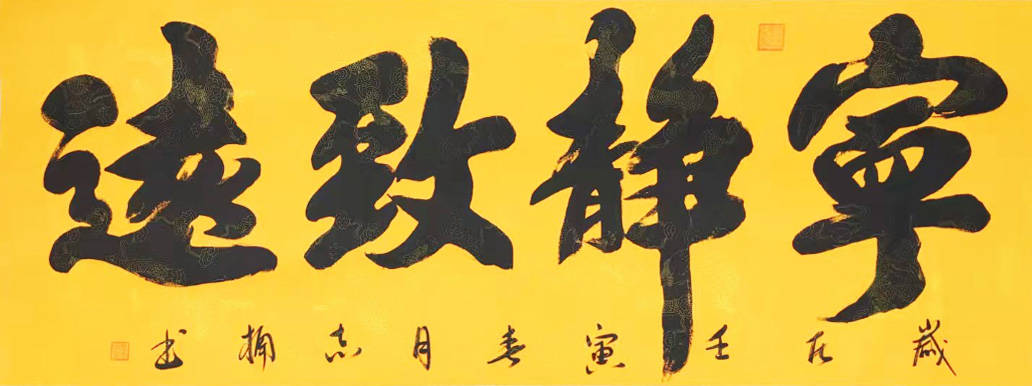 寧靜致遠
歲在壬寅春月志书